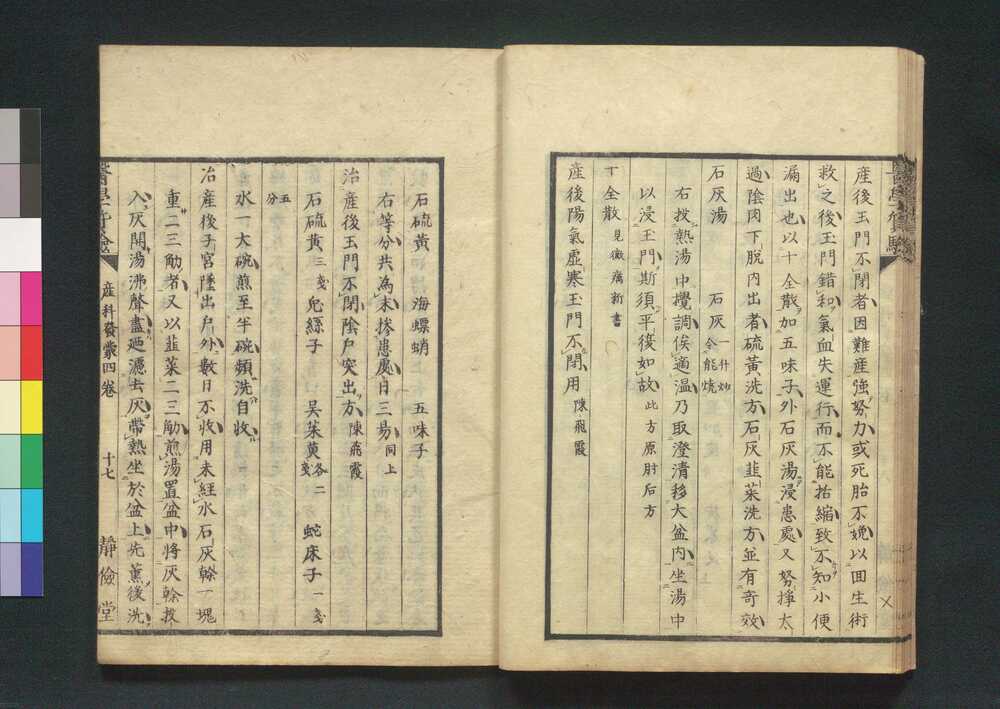 産後玉門不閉者因難産強努力或死胎不娩以回生術
救之後玉門錯和氣血失運行而不能括縮致不知小便
漏出也以十全散加五味子外石灰湯浸患處又努掙太
過陰肉下脱内出者硫黄洗方石灰韭菜洗方並有奇效
石灰湯
石灰 一升炒令能燒
右投熱湯中攪調俟適温乃取澄清移大盆内坐湯中
以浸玉門斯須平復如故 此方原肘后方
十全散 見黴瘡新書
産後陽氣虚寒玉門不閉用 陳飛霞
石硫黄 海螵蛸 五味子
右等分共為末摻患處日三易 同上
治産後玉門不閉陰戸突出方 陳飛霞
石硫黄 三戔 兔絲子 吴茱萸 各二戔 蛇床子 一戔
五分
水一大碗煎至半碗頻洗自收
治産後子宮墜出戸外數日不收用未經水石灰餘一塊
重二三觔者又以韭菜二三觔煎湯置盆中將灰餘投
入灰開湯沸聲盡廼濾去灰帶熱坐於盆上先薫後洗
産科發蒙四卷
十七
靜儉堂